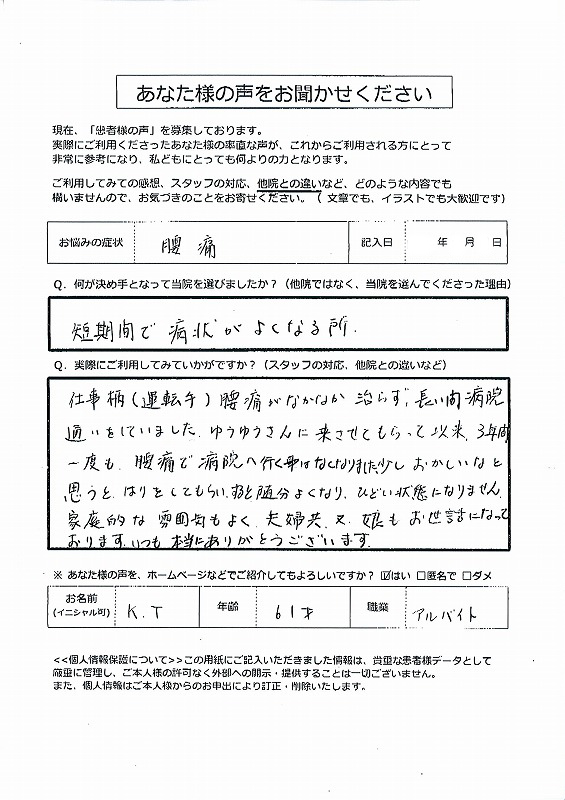 あなた様の声をお聞かせください
現在、「患者様の声」を募集しております。
実際にご利用くださったあなた様の率直な声が、これからご利用される方にとって
非常に参考になり、私どもにとっても何よりの力となります。
ご利用してみての感想、スタッフの対応、他院との違いなど、どのような内容でも
構いませんので、お気づきのことをお寄せください。（ 文章でも、イラストでも大歓迎です）
お悩みの症状 腰痛 記入日 年 月 日
Q．何が決め手となって当院を選びましたか？（他院ではなく、当院を選んでくださった理由）
短期間で病状がよくなる所．
Q．実際にご利用してみていかがですか？（スタッフの対応、他院との違いなど）
仕事柄（運転手）腰痛がなかなか治らず、長い間病院
通いをしていました。ゆうゆうさんに来させてもらって以来、3年間
一度も、腰痛で病院へ行く事はなくなりました。少しおかしいなと
思うと、はりをしてもらい、すると随分よくなり、ひどい状態になりません。
家庭的な雰囲気もよく、夫婦共、又、娘もお世話になって
おります。いつも本当にありがとうございます。
※ あなた様の声を、ホームページなどでご紹介してもよろしいですか？ ☑はい □匿名で □ダメ
お名前 (イニシャル可) K．T 年齢 61才 職業 アルバイト
<<個人情報保護について>>この用紙にご記入いただきました情報は、貴重な患者様データとして
厳重に管理し、ご本人様の許可なく外部への開示・提供することは一切ございません。
また、個人情報はご本人様からのお申出により訂正・削除いたします。